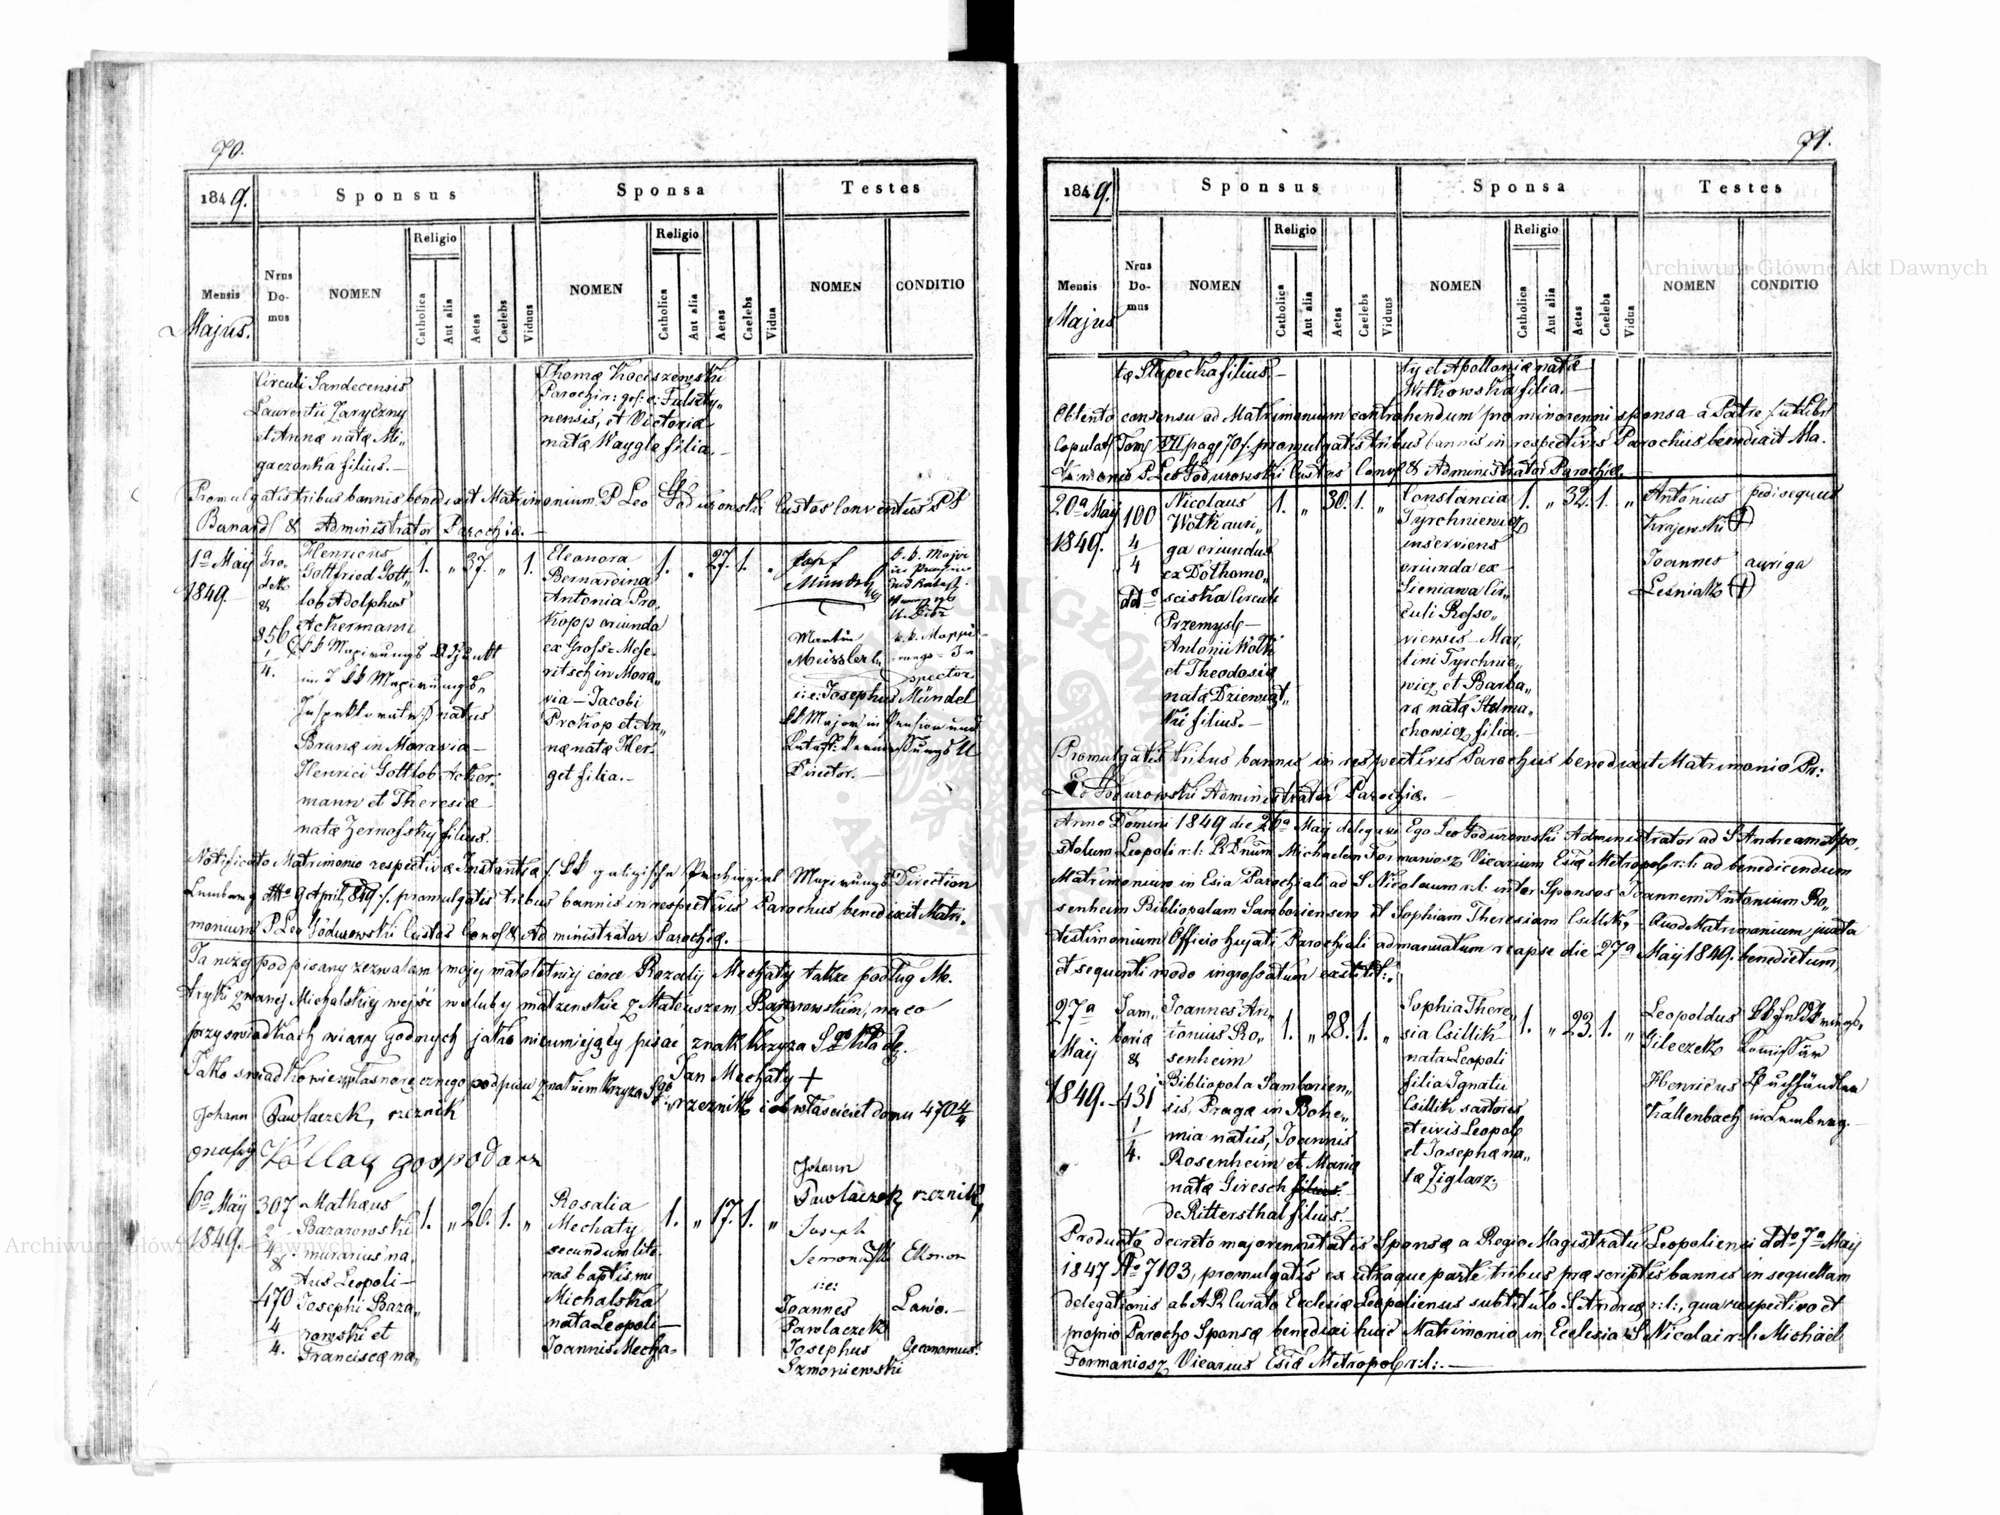 70.
1849.
Sponsus
Sponsa
Testes
Mensis
Majus.
Nrus Do- mus
NOMEN
Religio
Catholica
Aut alia
Aetas
Caelebs
Viduus
NOMEN
Religio
Catholica
Aut alia
Aetas
Caelebs
Vidua
NOMEN
CONDITIO
Circuli Sandecensis
Laurentii Zaryczny
et Annæ natæ Mi„
gaczonka filius.—
Thomæ Kociszewski
nensis, et Victoriæ
natæ Waygle filia.—
Promulgatis tribus bannis benedixit Matrimonium P Leo Godurowski Custos Conventus PP
Bernard & Administrator Parochiæ.—
1a Maij
1849.
Gro-
dek
&
856
1/4.
Henricus
Gottfried Gott„
lob Adolphus
Ackermann
kk Mapirungs Adjunkt
im I kk Mapirungs„
Inspektorate natus
Brunæ in Moravia—
Henrici Gottlob Acker:
mann et Theresiæ
natæ Zernofsky filius.
1. „ 37. „ 1.
Eleonora
Bernardina
Antonia Pro„
kopp oriunda
ex Gross-Mese„
ritsch in Mora„
via—Jacobi
Prokop et An„
næ natæ Her-
get filia.—
1. „ 27. 1. „
Josef
Mündel
k.k. Major
in Pension
Martin
Meissler
k.k. Mappi-
rungs= In
spector
i:e: Josephus Mündel
kk Major in Pension und
Katast: Vermessungs U
Director.—
Notificato Matrimonio respectivæ Instantiæ /: kk galizische Provinzial Mapirungs Direction
Lemberg ddto 9 April 849 :/. promulgatis tribus bannis in respectivis Parochiis benedixit Matri„
monium P Leo Godurowski Custos Conv & Administrator Parochiæ.
Ja niżej podpisany zezwalam mojej małoletniej córce Rozalij Mechaty także podług Me„
tryki zwanej Michalskiej wejść w śluby małżeńskie z Mateuszem Bazarowskim, na co
przy świadkach wiary godnych jako nieumiejący pisać znak krzyża Sgo kładę.
Jan Mechaty +
Jako świadkowie własnoręcznego podpisu znakiem krzyża Sgo rzeźnik i obwłaściciel domu 470 4/4
Johann Pawlaczek, rzeznik
Kollay gospodarz
6a Maij
1849.
307
2/4
&
470
4/4.
Mathæus
Bazarowski
murarius na„
tus Leopoli—
Josephi Baza„
rowski et
Franciscæ na„
1. „ 26. 1. „
Rosalia
Mechaty
secundum lite„
ras baptismi
Michalska
nata Leopoli—
Joannis Mecha-
1. „ 17. 1. „
Johann
Pawlaczek rzeznik
Joseph
Ekonom
i:e:
Joannes
Pawlaczek
Josephus
Szmoniewski
Lanio.—
Oeconomus.
71.
1849.
Sponsus
Sponsa
Testes
Mensis
Majus
Nrus Do- mus
NOMEN
Religio
Catholica
Aut alia
Aetas
Caelebs
Viduus
NOMEN
Religio
Catholica
Aut alia
Aetas
Caelebs
Vidua
NOMEN
CONDITIO
tæ Słupecka filius.—
ty et Apolloniæ natæ
Witkowska filia.—
Obtento consensu ad Matrimonium contrahendum pro minorenni sponsa a Patre /: ut Libr
Copulat: Tom: XVII pag 70 :/. promulgatis tribus bannis in respectivis Parochiis benedixit Ma„
trimonio P Leo Godurowski Custos Conv & Administrator Parochiæ.
20a Maij
1849.
100
4/4
ddto
Nicolaus
Wolk auri„
ga oriundus
ex Dothomo„
sciska Circuli
Przemysl—
Antonii Wolk
et Theodosiæ
natæ Dziewiąt„
ki filius.—
1. „ 30. 1. „
Constancia
Tyrchniewicz
inserviens
oriunda ex
Sieniawa Cir„
culi Rzeszo„
viensis—Mar„
tini Tyrchnie„
wicz et Barba„
ræ natæ Stelma„
chowicz filia.—
1. „ 32. 1. „
Antonius
Krajewski (+)
pedisequus
Joannes
Leśniak (+)
auriga
Promulgatis tribus bannis in respectivis Parochiis benedixit Matrimonio Pr:
Leo Godurowski Administrator Parochiæ.—
Anno Domini 1849 die 26a Maij delegavi Ego Leo Godurowski Administrator ad S Andream Apo„
stolum Leopoli r:l: R Dnum Michaelem Formaniosz Vicarium Esiæ Metropol: r:l: ad benedicendum
Matrimonium in Esia Parochiali ad S Nicolaum r:l: inter Sponsos Joannem Antonium Ro„
senheim Bibliopolam Samboriensem et Sophiam Theresiam Csillik,— Quod Matrimonium juxta
testimonium Officio hujati Parochiali admanuatum reapse die 27a Maij 1849. benedictum,
et sequenti modo ingrossatum exstitit:
27a
Maij
1849.
Sam„
boriæ
&
431
1/4.
Joannes An„
tonius Ro„
senheim
Bibliopola Samborien„
sis, Pragæ in Bohe„
mia natus, Joannis
Rosenheim et Mariæ
natæ Giresch filius.
de Rittersthal filius.
1. „ 28. 1. „
Sophia There„
sia Csillik
nata Leopoli
filia Ignatii
Csillik sartoris
et civis Leopol
et Josephæ na„
tæ Ziglarz
1. „ 23. 1. „
Leopoldus
Gileczek
Commissär
Henricus
Kallenbach
Buchhändler
in Lemberg.—
Producto decreto majorennitatis Sponsæ a Regio Magistratu Leopoliensi ddto 7a Maij
1847 No 7103, promulgatis ex utraque parte tribus præscriptis bannis in sequellam
delegationis ab A R Curato Ecclesiæ Leopoliensis sub titulo S Andreæ r:l:, qua respectivo et
proprio Parocho Sponsæ benedixi huic Matrimonio in Ecclesia S Nicolai r:l: Michaël
Formaniosz Vicarius Esiæ Metropol r:l:.—
Archiwum Główne Akt Dawnych
Archiwum Główne Akt Dawnych